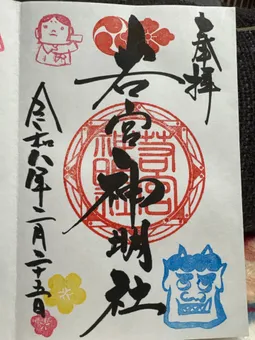 奉拝
若宮神明社
令和八年二月二十五日
若宮神明社